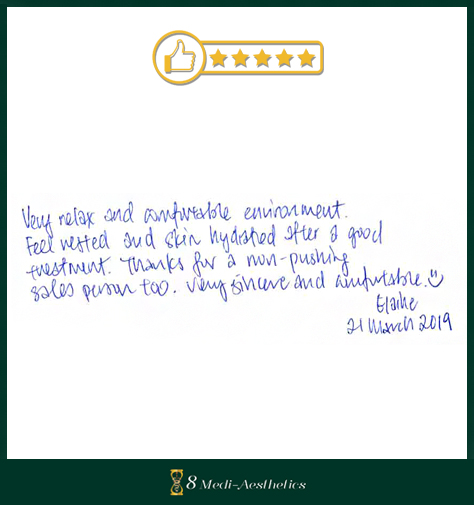 Very relax and comfortable environment.
Feel rested and skin hydrated after a good
treatment. Thanks for a non-pushing
sales person too. Very sincere and comfortable.
Elaine
21 March 2019
8 Medi-Aesthetics